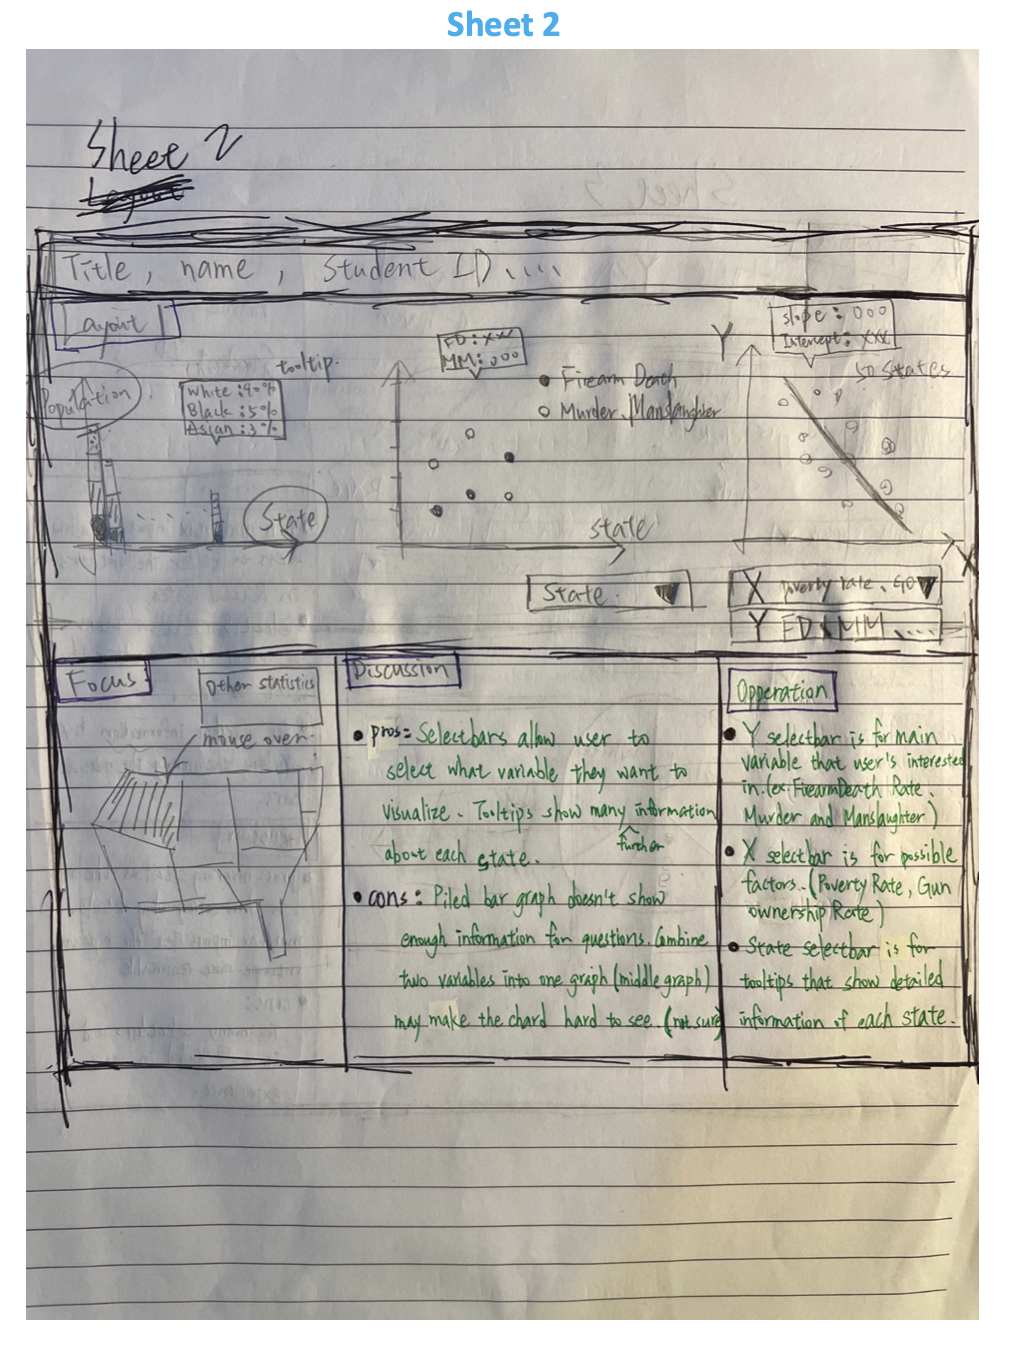 Sheet 2
Sheet 2
Layout
Title, name, Student ID ....
Layout
Population
tooltip.
White : 90%
Black : 5%
Asian : 3%
State
FD : XX
MM : 000
Firearm Death
Murder. Manslaughter
state
Y
slope : 000
Intercept : XXX
50 States
X
State.
X Poverty rate, GO
Y FD, MM ....
Focus
Other statistics
mouse over
Discussion
• pros: Selectbars allow user to
select what variable they want to
visualize. Tooltips show many information
further
about each state.
• cons: Piled bar graph doesn't show
enough information for questions. Combine
two variables into one graph (middle graph)
may make the chard hard to see. (not sure)
Opperation
• Y selectbar is for main
variable that user's interested
in. (ex. FirearmDeath Rate.
Murder and Manslaughter)
• X selectbar is for possible
factors. (Poverty Rate, Gun
ownership Rate)
• State selectbar is for
tooltips that show detailed
information of each state.